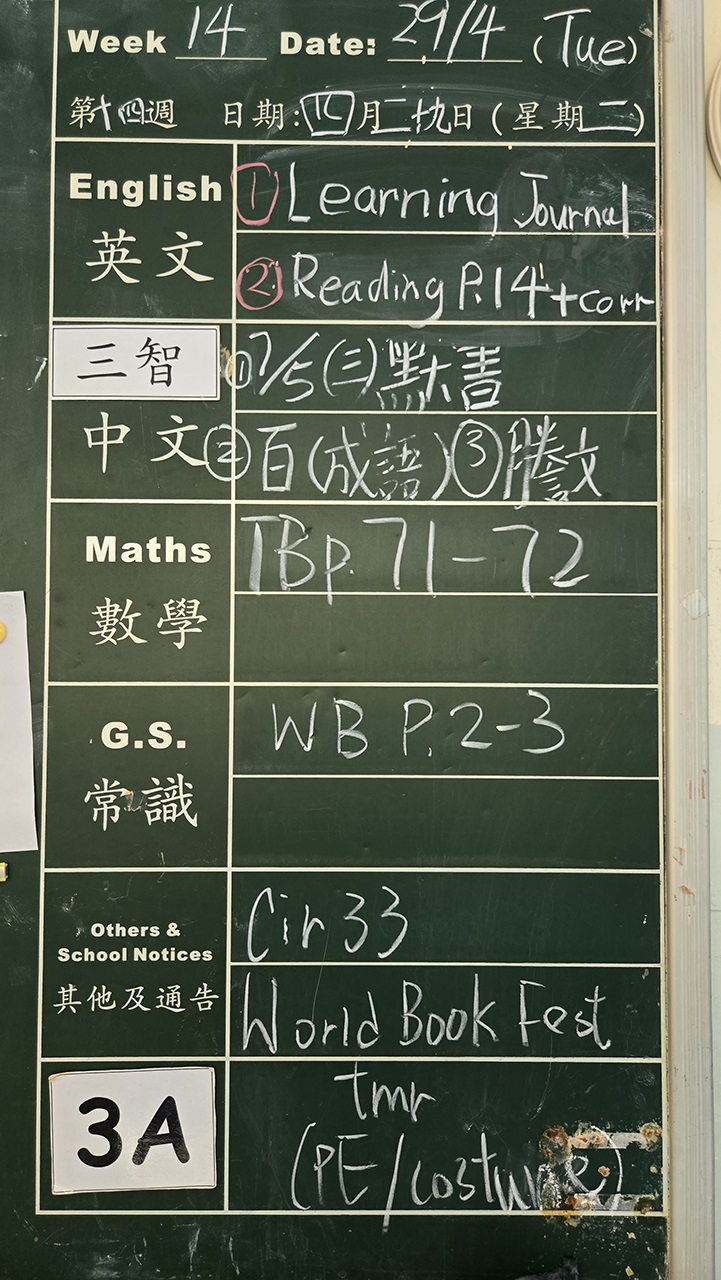 Week 14 Date: 29/4 (Tue)
第十四週 日期:四月二十九日(星期二)
English
英文
① Learning Journal
② Reading P.14+corr
三智
中文
① 7/5(三)默書
② 百(成語)③謄文
Maths
數學
TB p. 71-72
G.S.
常識
WB P. 2-3
Others &
School Notices
其他及通告
Cir 33
World Book Fest
3A
tmr
(PE/costume)